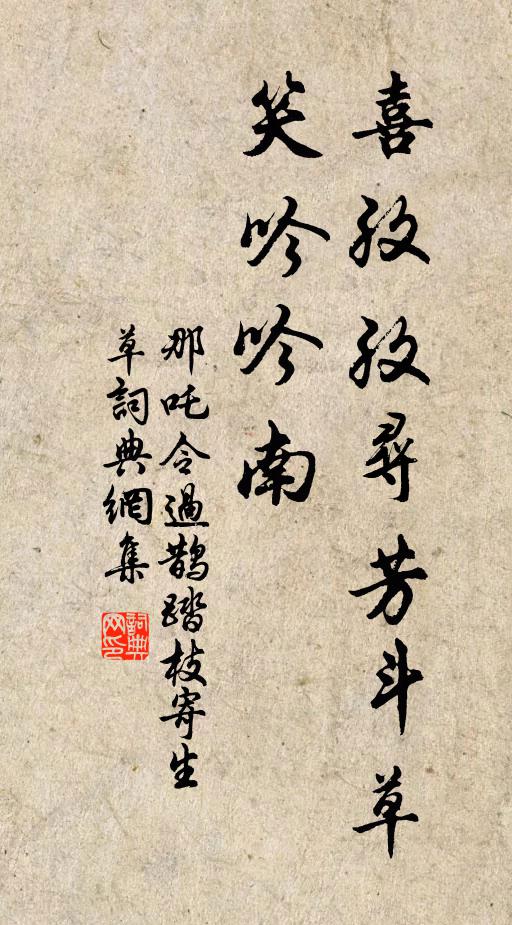 喜孜孜尋芳斗草
笑吟吟南
那吒令過鵲踏枝寄生
草詞典網集
詞典网印